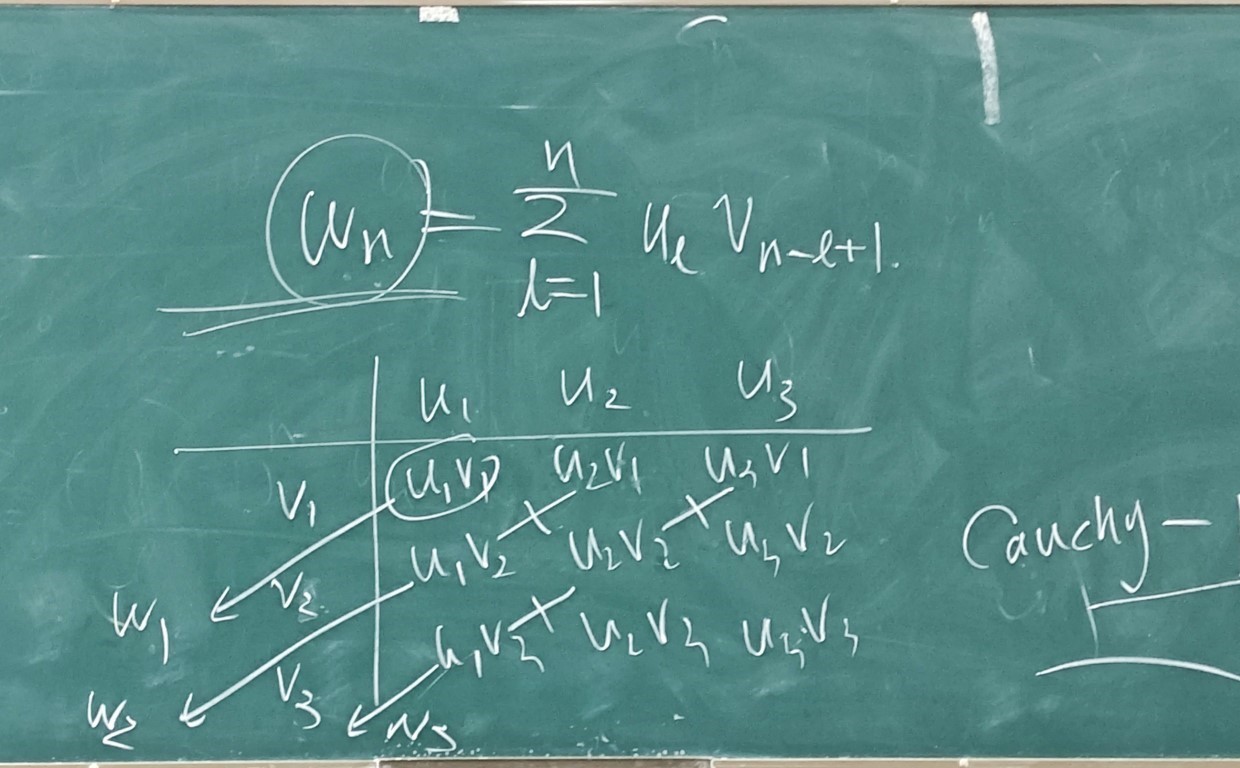 n
wₙ = Σ uₗ vₙ₋ₗ₊₁.
l=1
u₁ u₂ u₃
v₁ u₁v₁ u₂v₁ u₃v₁
v₂ u₁v₂ u₂v₂ u₃v₂
v₃ u₁v₃ u₂v₃ u₃v₃
w₁
w₂ w₃
Cauchy –